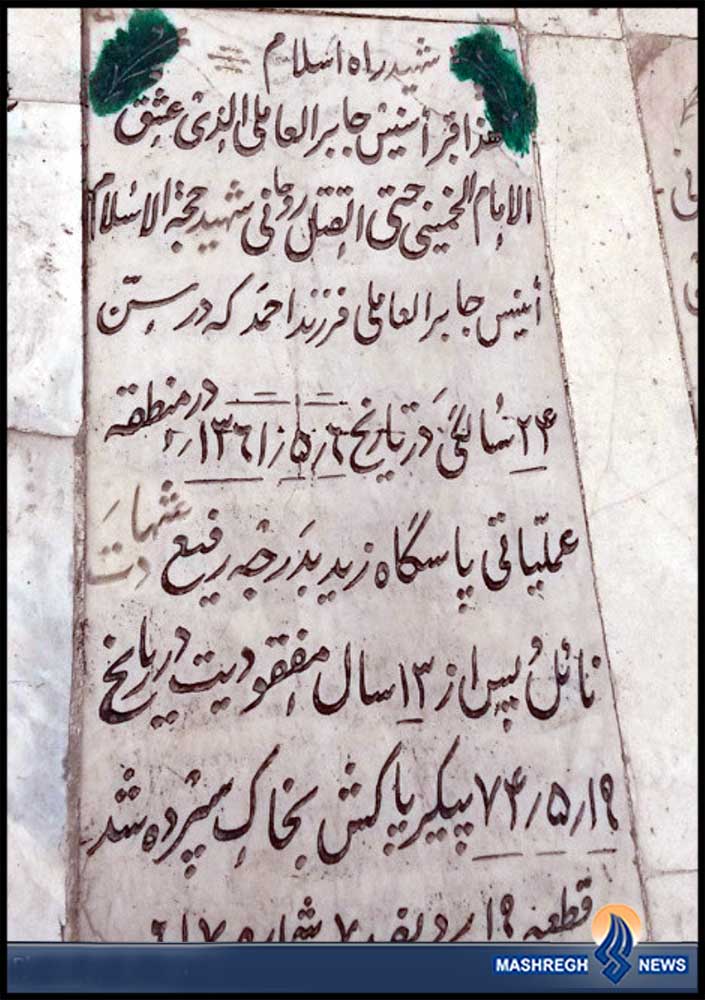 شهید راه اسلام
هذا قبر أنیس جابر العاملی الذی عشق
الإمام الخمینی حتی القتل روحانی شهید حجة الاسلام
أنیس جابر العاملی فرزند احمد که در سن
۲۴ سالگی در تاریخ ۱۳۶۱٫۵٫۶ در منطقه
عملیاتی پاسگاه زید بدرجه رفیع شهادت
نائل و پس از ۱۳ سال مفقودیت در تاریخ
۷۴٫۵٫۱۹ پیکر پاکش بخاک سپرده شد
قطعه ۱۹ ردیف ۷ شماره
MASHREGH NEWS